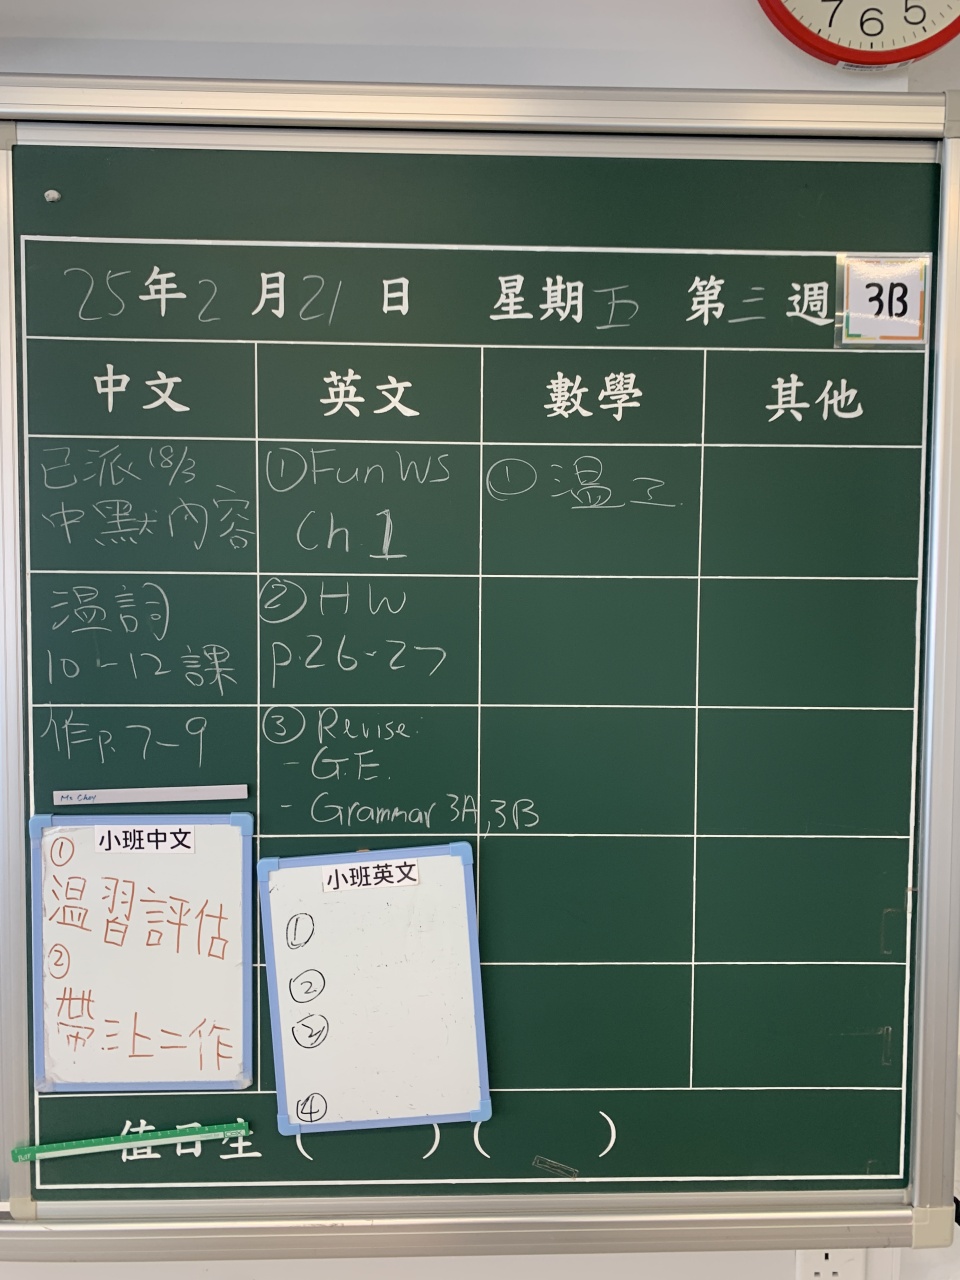 7 6 5
25年2月21日 星期五 第三週 3B
中文 英文 數學 其他
已派18/3
中默內容
溫詞
10-12課
作p.7-9
①Fun WS
Ch.1
②HW
p.26-27
③Revise:
- G.E.
- Grammar 3A,3B
①溫
小班中文
①
溫習評估
②
帶三上二作
小班英文
①
②
③
④
值日生 ( ) ( )